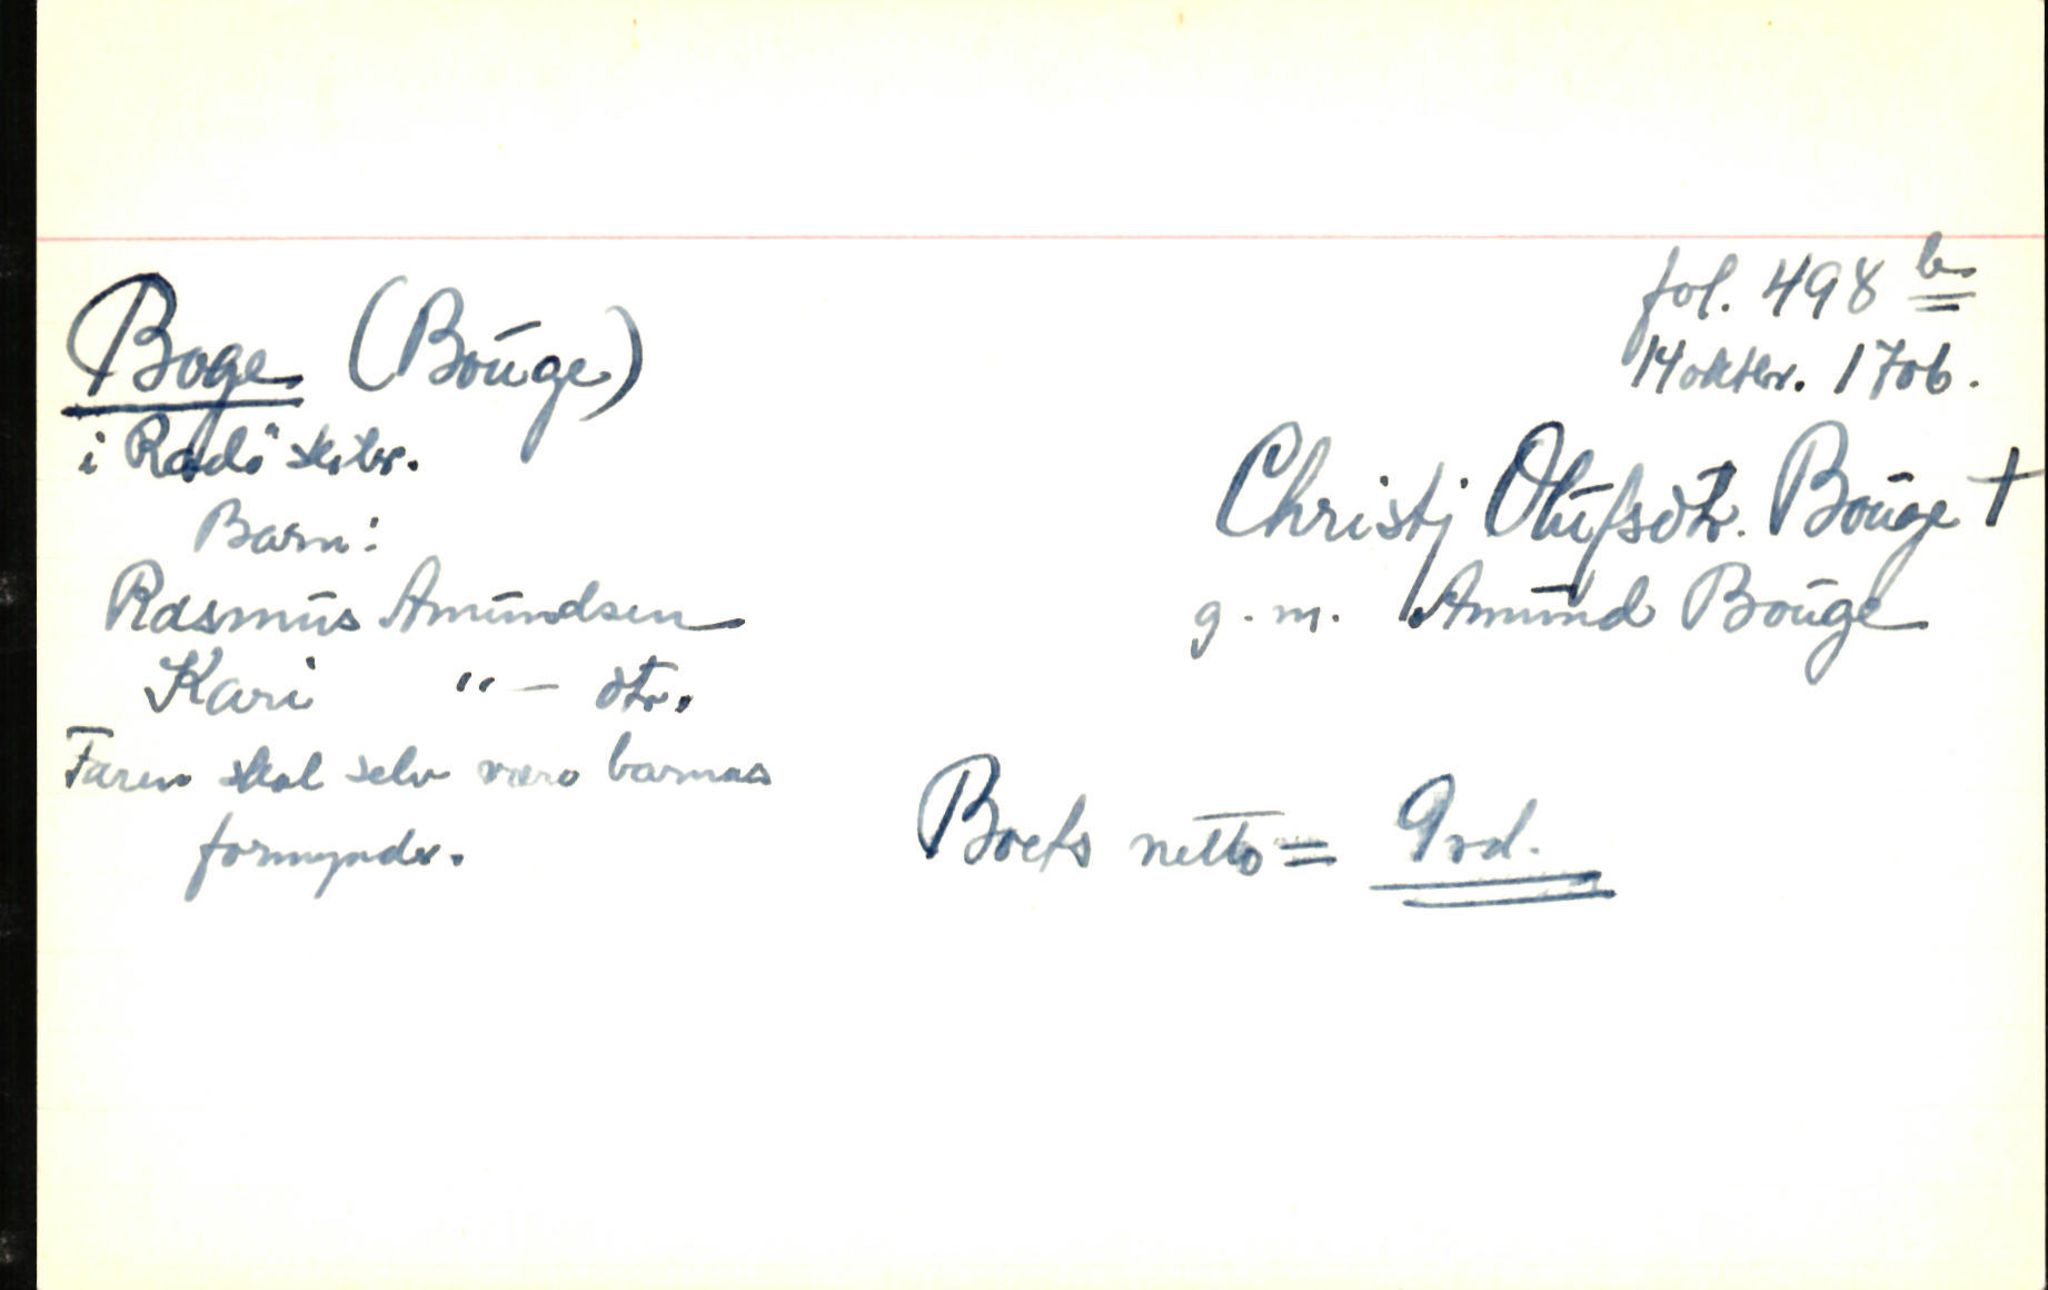 Boge (Boüge)
i Radö sktbr.
Barn:
Rasmüs Amündsen
Kari " – dtr.
Faren skal selv være barnas
formynder.
fol. 498 b
14 oktbr. 1706.
Christj Olüfsdtr. Boüge †
g. m. Amünd Boüge
Boets netto = 9 rd.